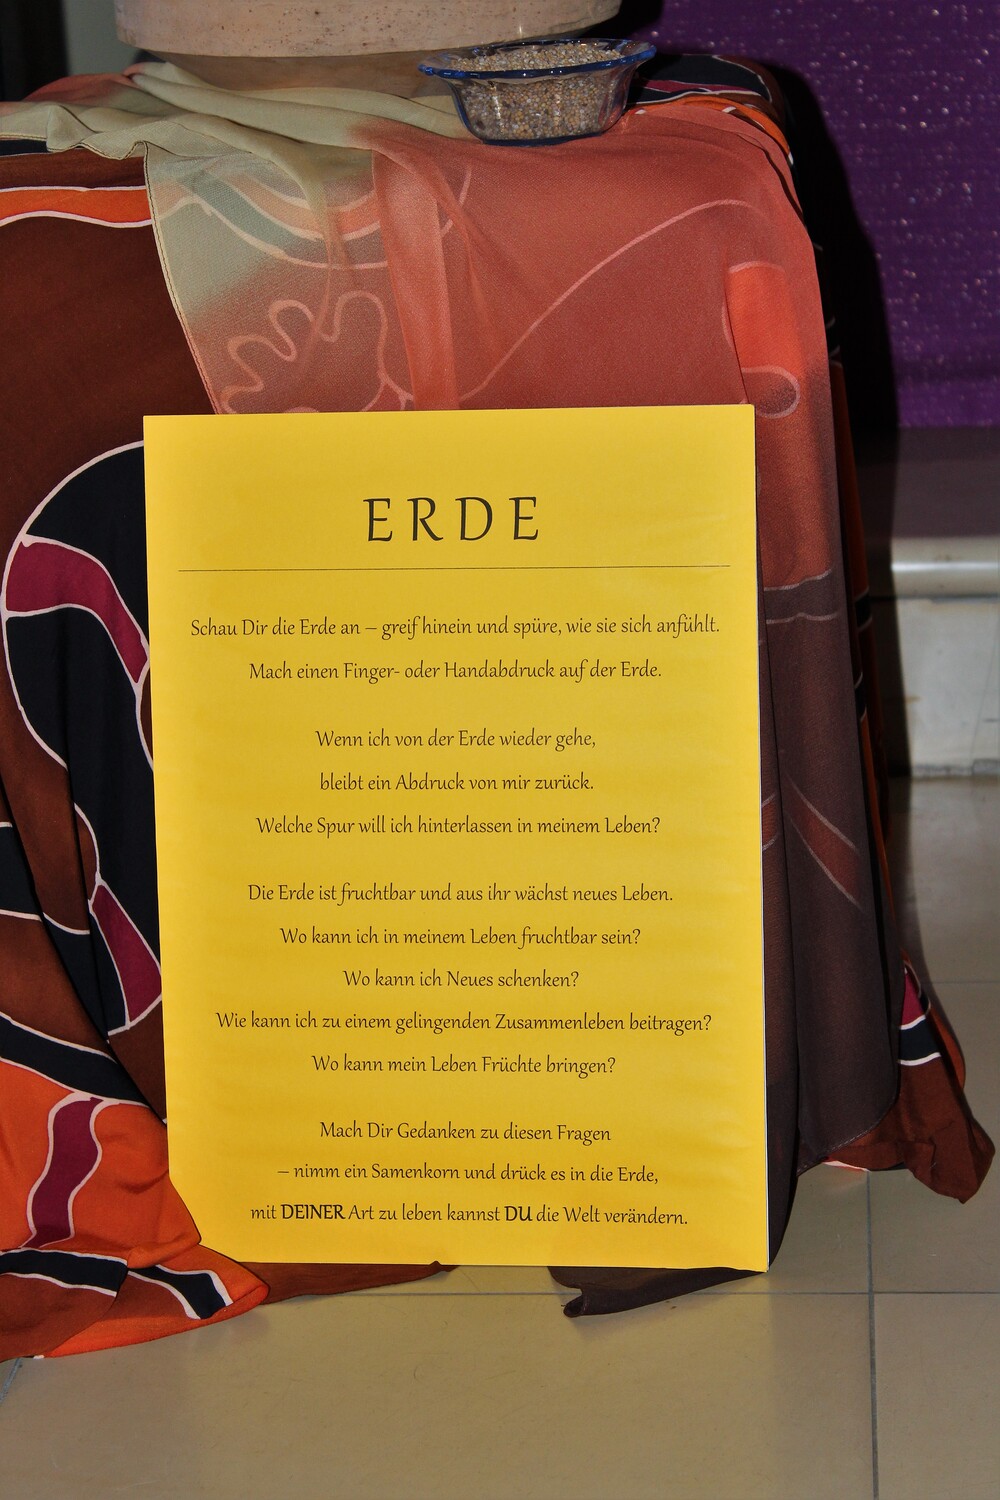 ERDE
Schau Dir die Erde an – greif hinein und spüre, wie sie sich anfühlt.
Mach einen Finger- oder Handabdruck auf der Erde.
Wenn ich von der Erde wieder gehe,
bleibt ein Abdruck von mir zurück.
Welche Spur will ich hinterlassen in meinem Leben?
Die Erde ist fruchtbar und aus ihr wächst neues Leben.
Wo kann ich in meinem Leben fruchtbar sein?
Wo kann ich Neues schenken?
Wie kann ich zu einem gelingenden Zusammenleben beitragen?
Wo kann mein Leben Früchte bringen?
Mach Dir Gedanken zu diesen Fragen
– nimm ein Samenkorn und drück es in die Erde,
mit DEINER Art zu leben kannst DU die Welt verändern.